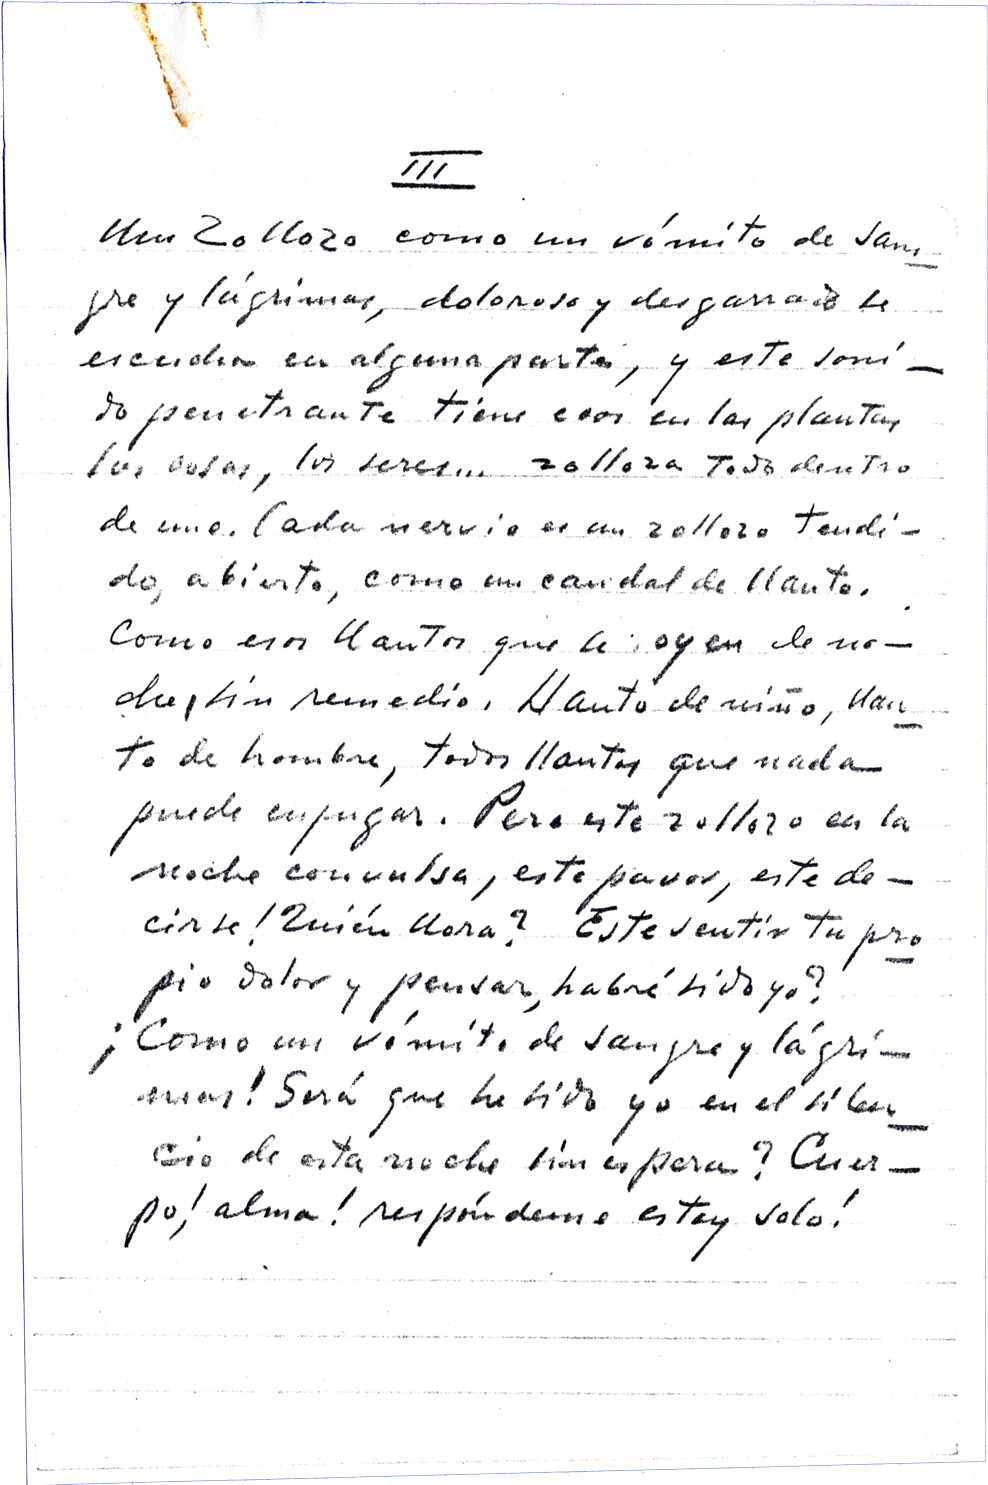 III
Un Zollozo como un vómito de san_
gre y lágrimas, doloroso y desgarrado se
escucha en alguna parte, y este soni_
do penetrante tiene ecos en las plantas
las cosas, los seres... zolloza Todo dentro
de uno. Cada nervio es un zollozo tendi-
do, abierto, como un caudal de llanto.
Como esos llantos que se oyen de no-
che, sin remedio. Llanto de niño, llan_
to de hombre, todos llantos que nada
puede enjugar. Pero este zollozo en la
noche convulsa, este pavor, este de-
cirse! Quién llora? Este sentir tu pro
pio dolor y pensar, habré sido yo?
¡Como un vómito de sangre y lágri-
mas! Será que he sido yo en el silen_
cio de esta noche sin espera? Cuer-
po! alma! respóndeme estoy solo!